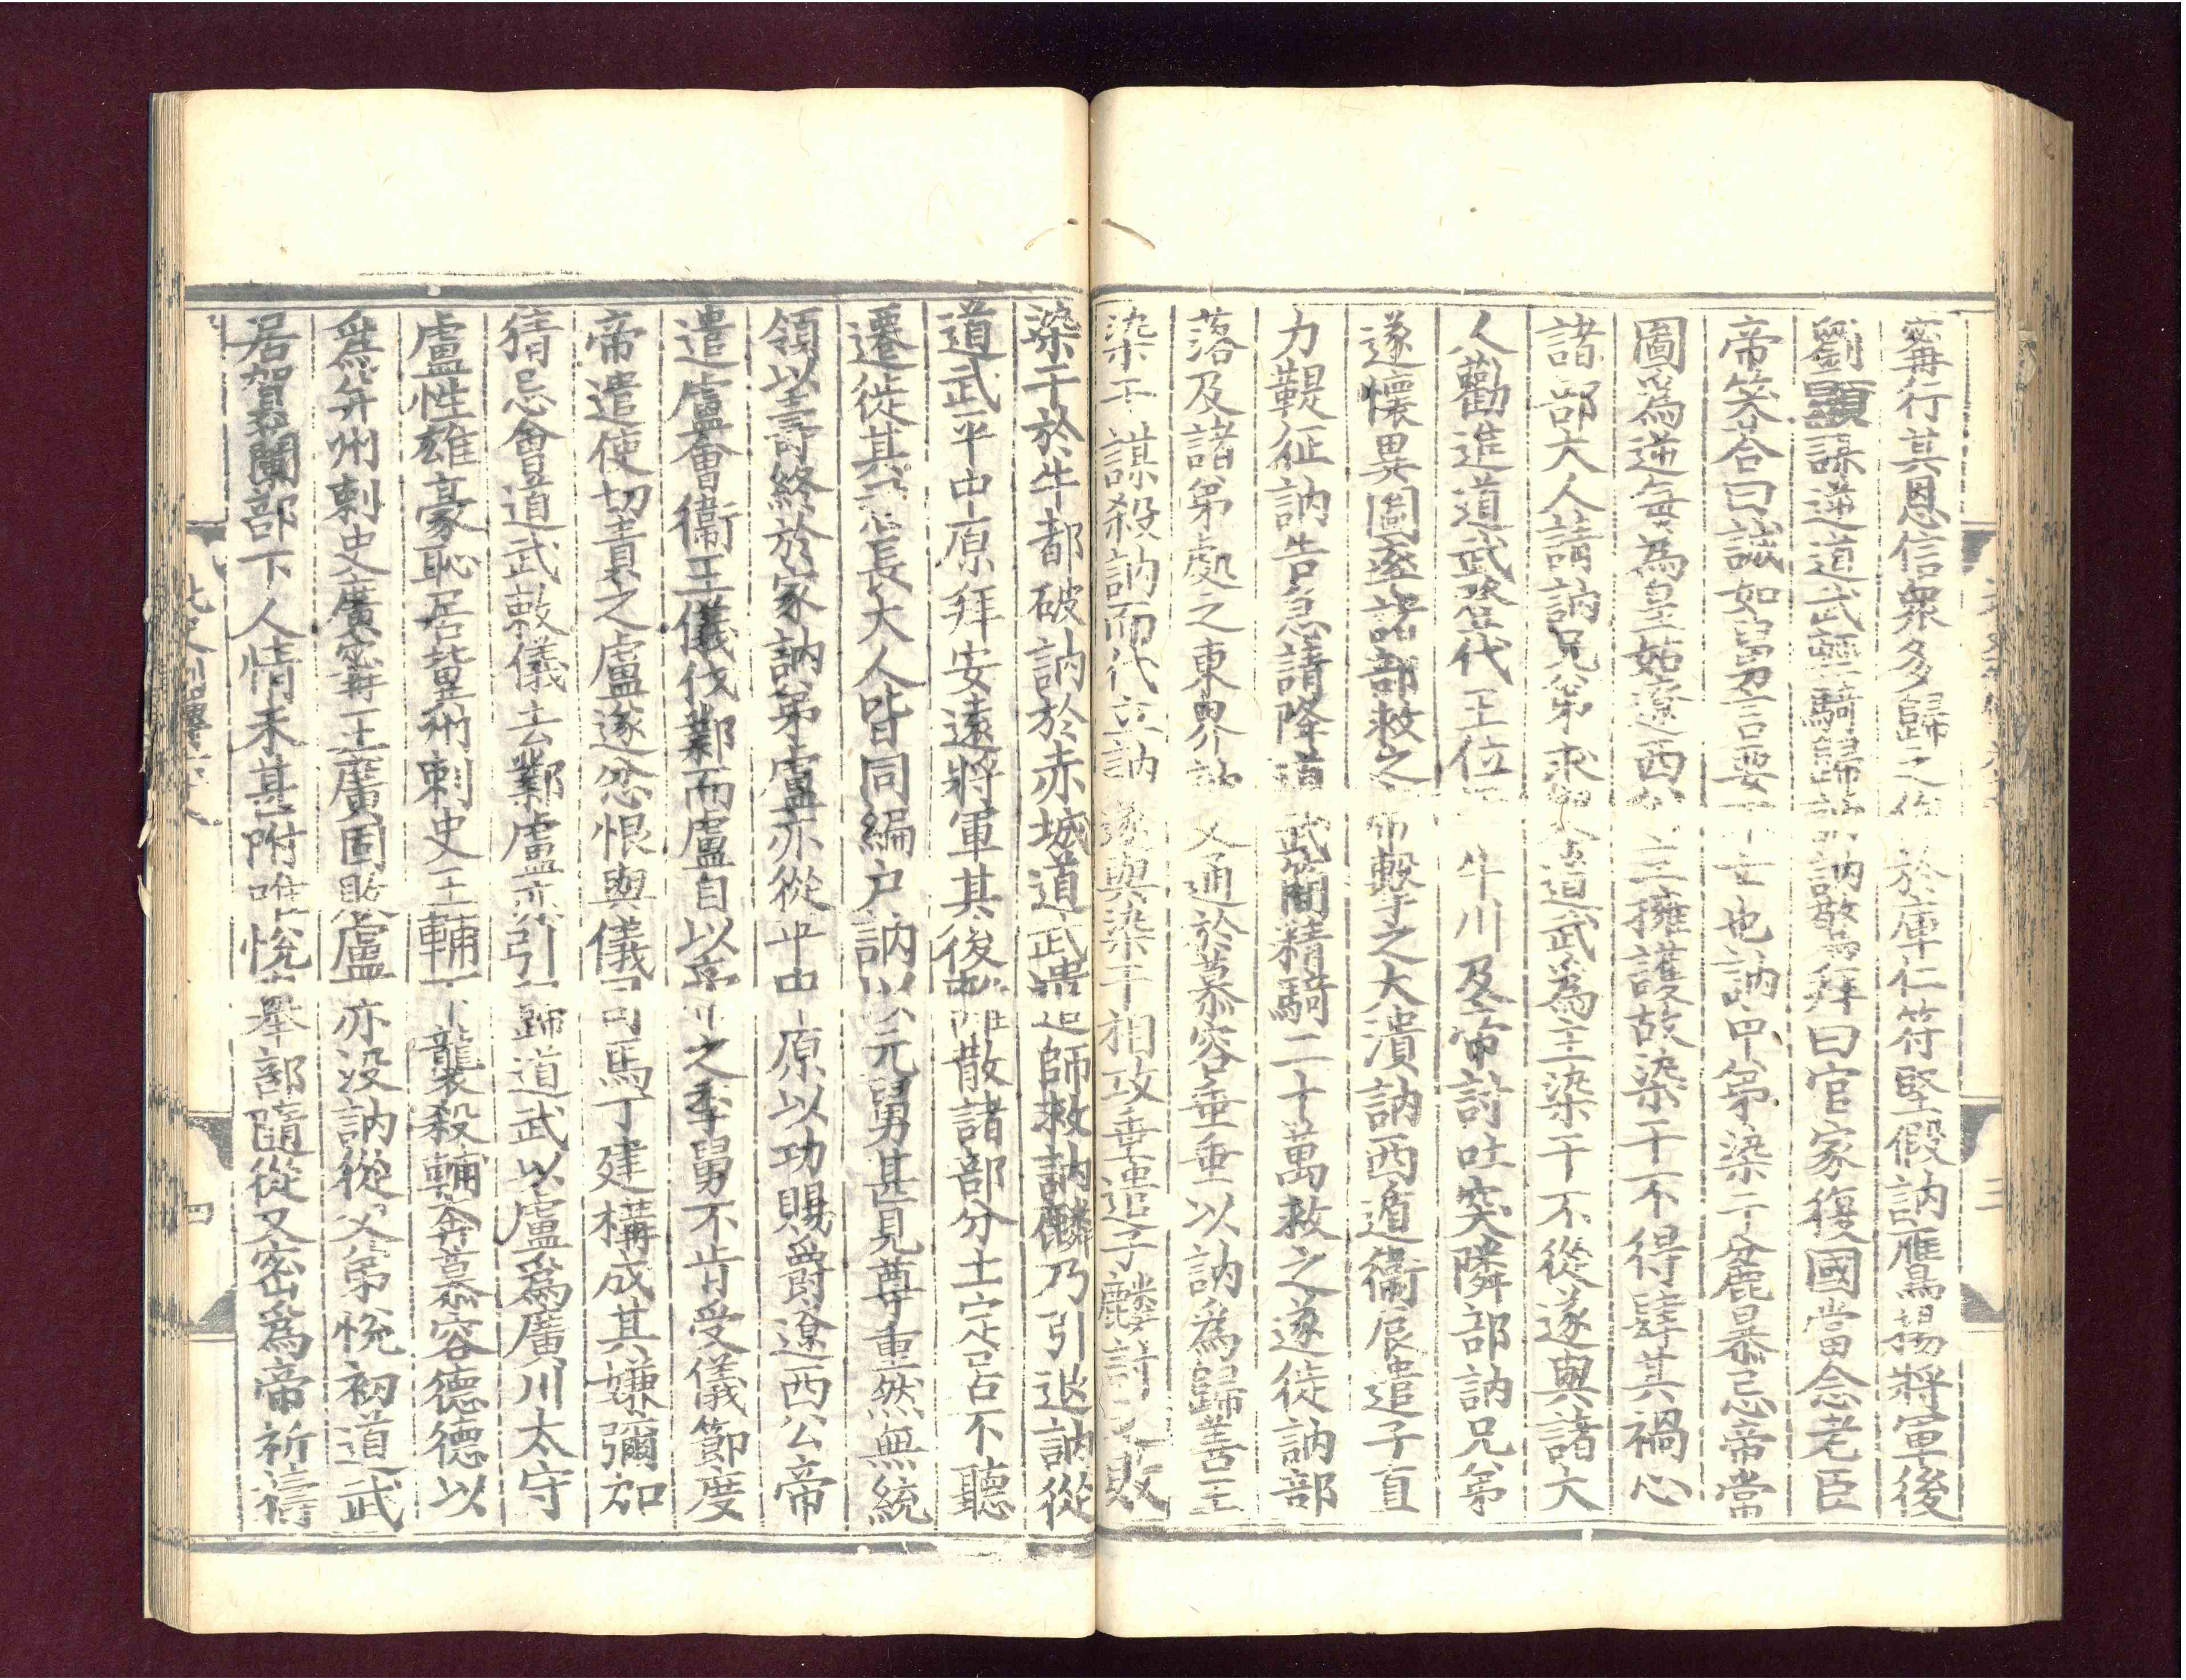 寗行其恩信衆多歸之 於庫仁符堅假訥鷹揚將軍後
劉顯謀逆道武輕騎歸訥訥驚拜曰官家復國當念老臣
帝笑荅曰誠如舅言要 也訥中弟染干麄暴忌帝常
圖爲逆每爲皇姑遼西 主擁護故染干不得肆其禍心
諸部大人請訥兄弟求 道武爲主染干不從遂與諸大
人勸進道武登代王位 牛川及帝討吐突隣部訥兄弟
遂懷異圖率諸部救之帝擊之大潰訥西遁衞辰遣子直
力鞮征訥告急請降道武簡精騎二十萬救之遂徙訥部
落及諸弟處之東界 又通於慕容垂垂以訥爲歸善王
染干謀殺訥而代立訥遂與染干相攻垂遣子麟討之敗
染干於牛都破訥於赤城道武遣師救訥麟乃引退訥從
道武平中原拜安遠將軍其後離散諸部分土定居不聽
遷徙其 長大人皆同編户訥以元舅甚見尊重然無統
領以壽終於家訥弟盧亦從平中原以功賜爵遼西公帝
遣盧會衞王儀伐鄴而盧自以 之季舅不肯受儀節度
帝遣使切責之盧遂忿恨與儀司馬丁建構成其嫌彌加
猜忌會道武敕儀去鄴盧亦引歸道武以盧爲廣川太守
盧性雄豪恥居冀州刺史王輔下襲殺輔奔慕容德德以
爲并州刺史廣寗王廣固敗盧亦没訥從父弟悅初道武
居賀蘭部下人情未甚附唯悅舉部隨從又密爲帝祈禱
北史列傳
四